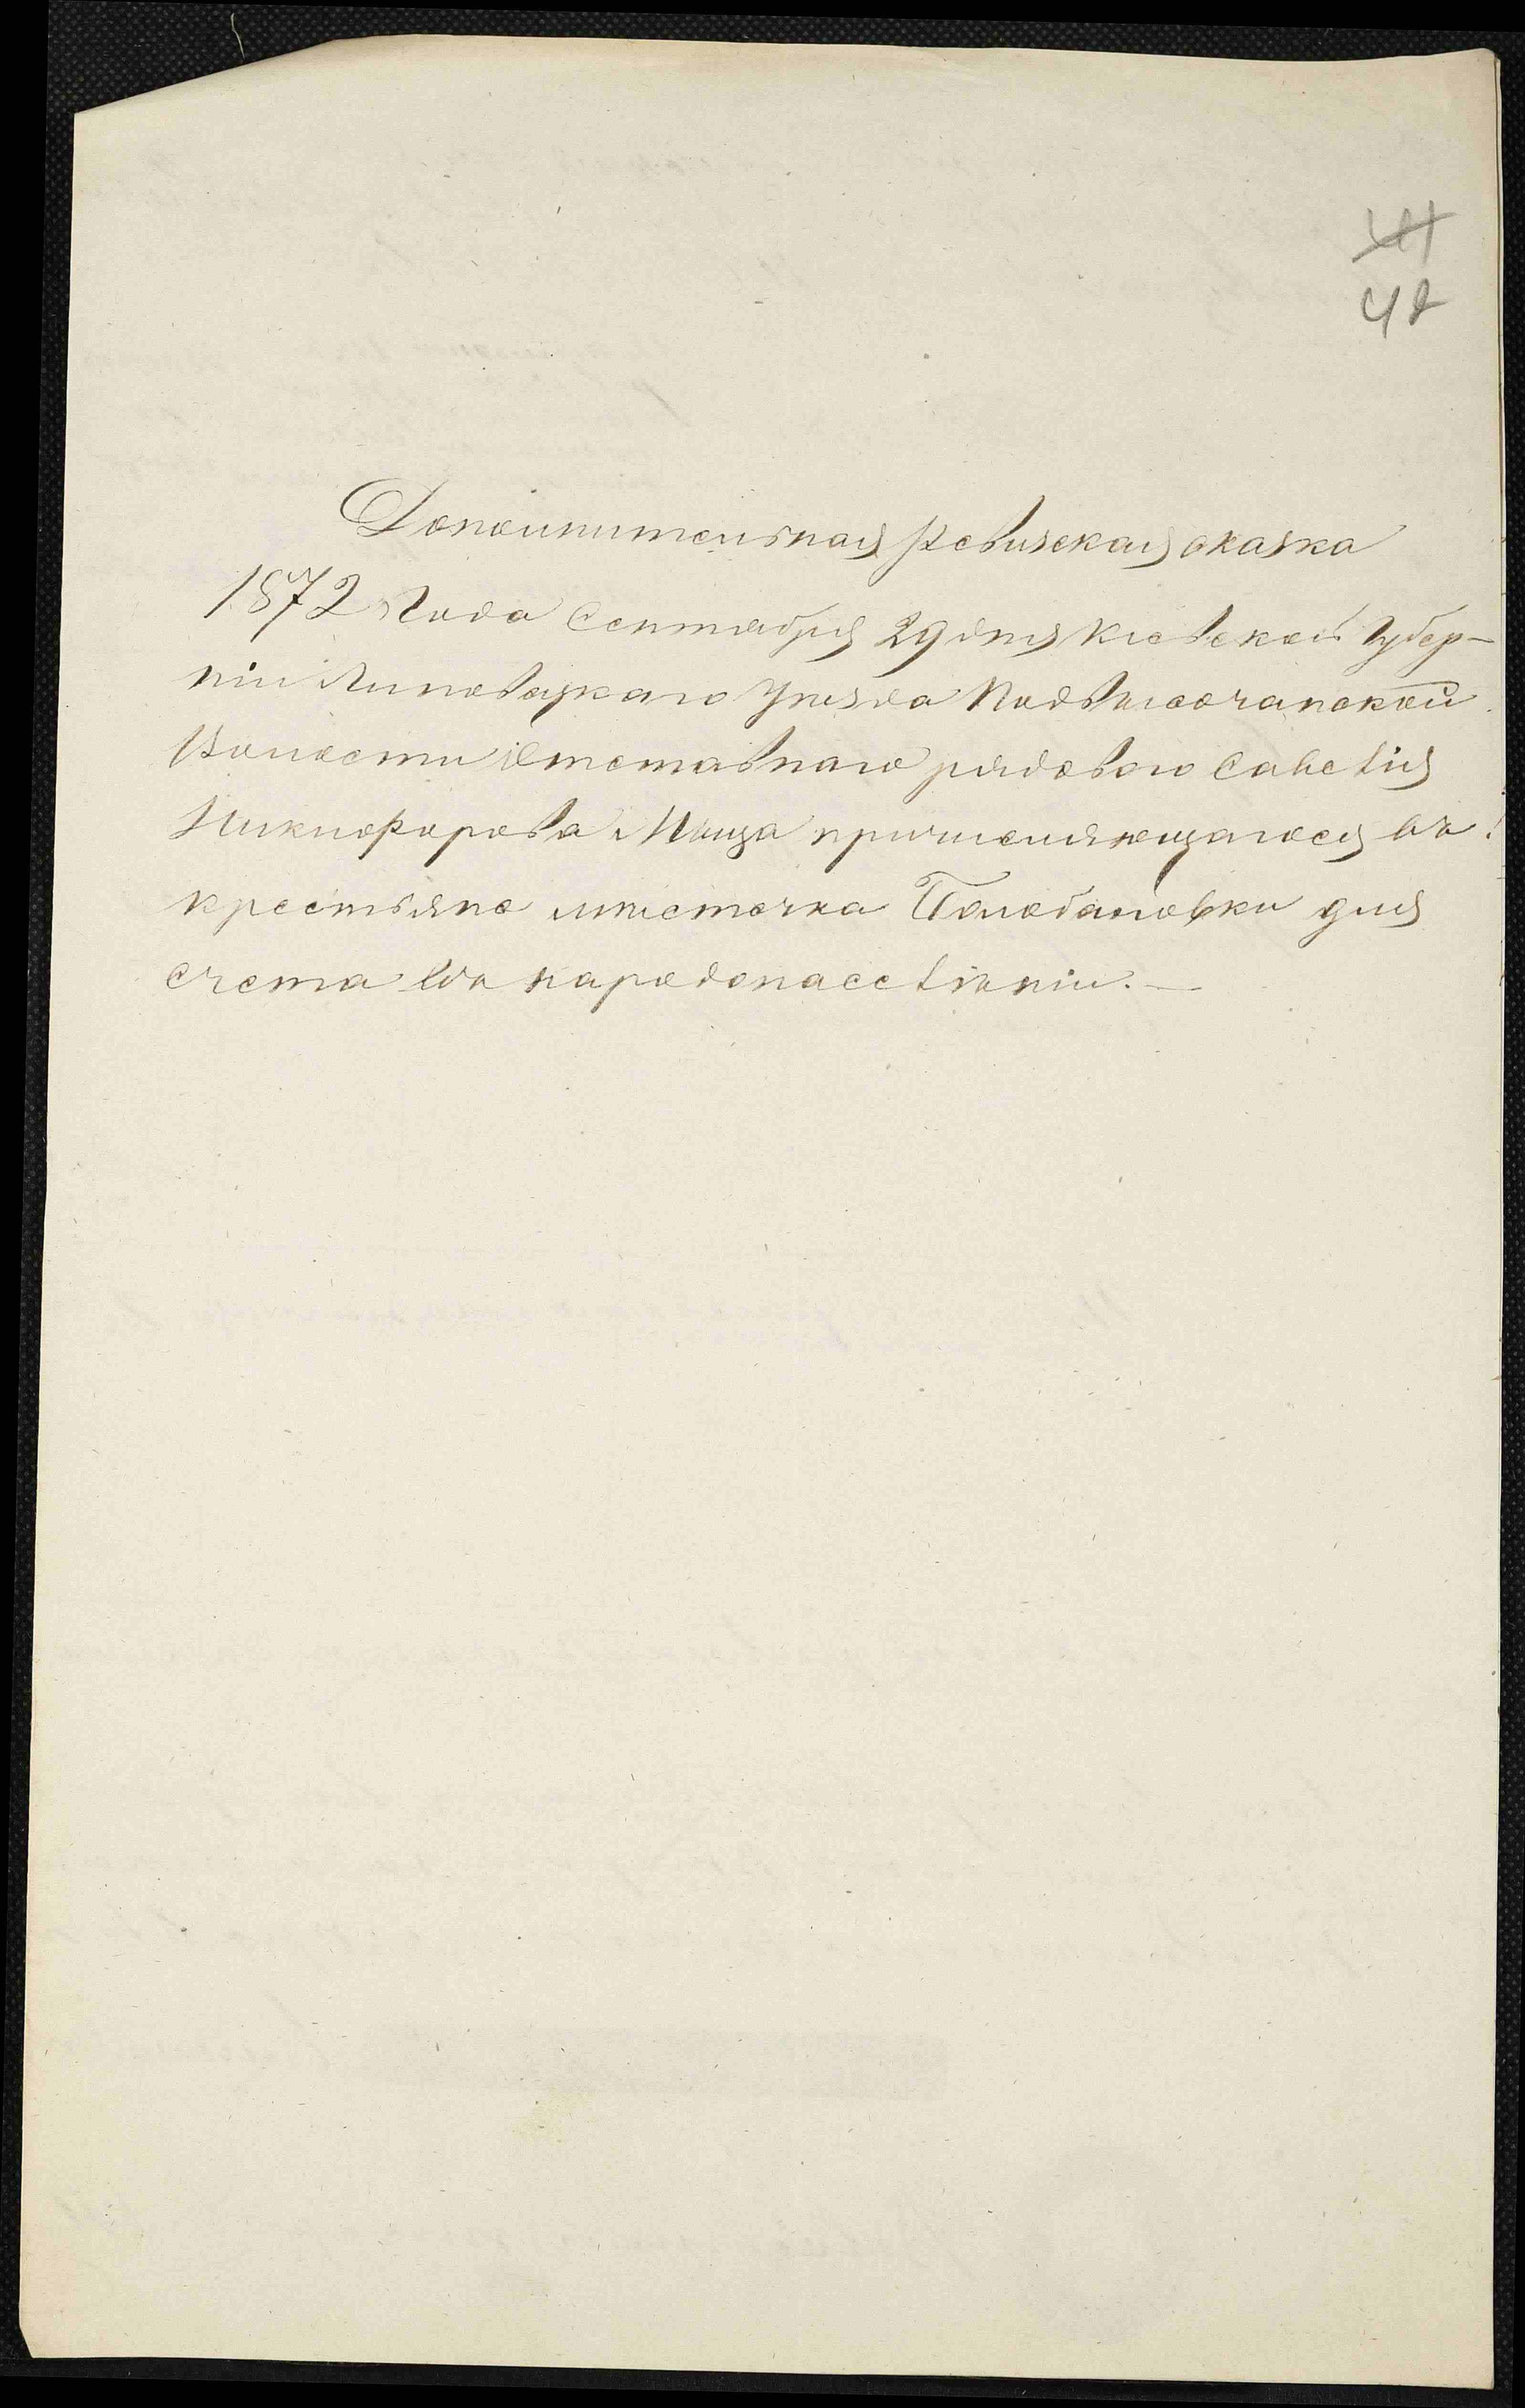 42
Дополнительная Ревизская сказка
1872 Года Сентября 29 дня Киевской Губер-
ніи Липовецкаго Уѣзда Подвысочанской
Волости Отставнаго рядоваго Савелія
Никифорова причисляющагося въ
крестьяне мѣстечка Голобановки для
счета въ народонаселѣніи.—